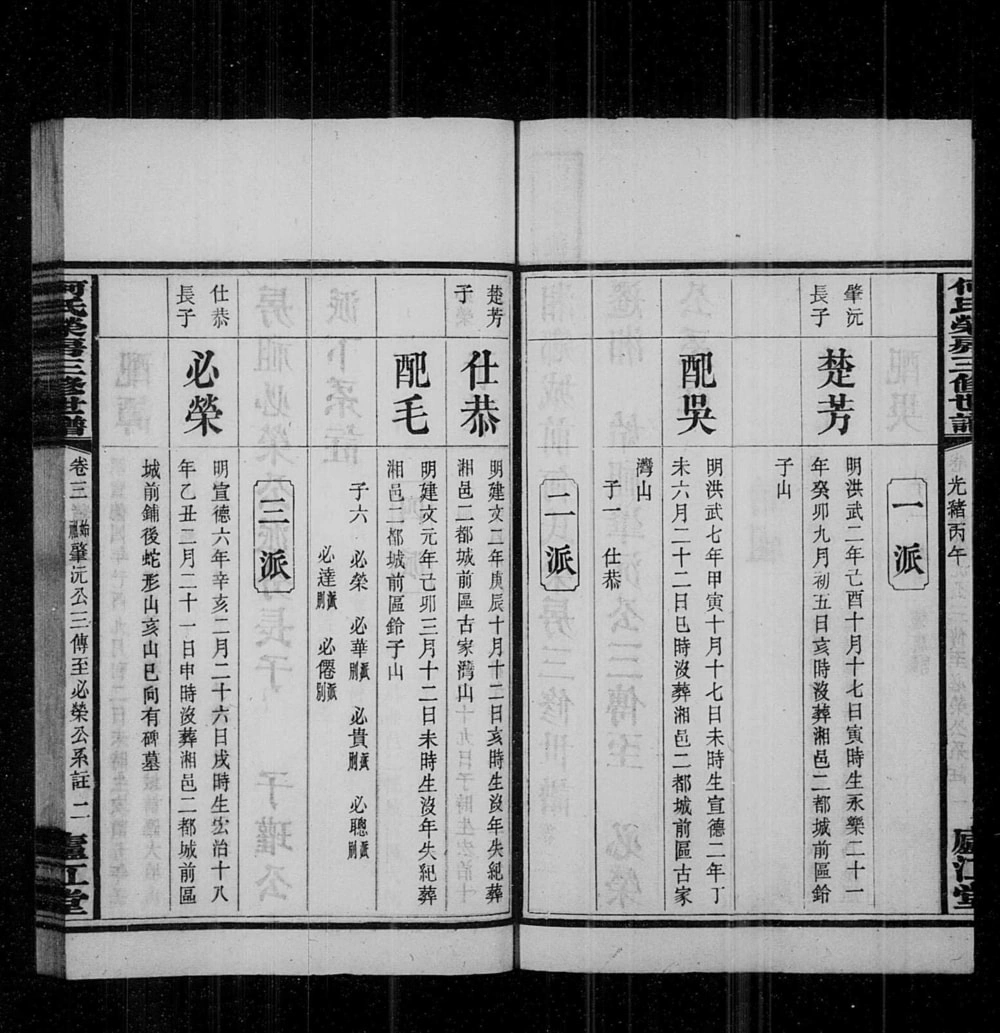 何氏榮房三修世譜
光緒丙午
廬江堂
一派
肇沅
長子
楚芳
明洪武二年己酉十月十七日寅時生永樂二十一
年癸卯九月初五日亥時沒葬湘邑二都城前區鈴
子山
配吳
明洪武七年甲寅十月十七日未時生宣德二年丁
未六月二十二日巳時沒葬湘邑二都城前區古家
灣山
子一 仕恭
二派
楚芳
子
仕恭
明建文二年庚辰十月十二日亥時生沒年失紀葬
湘邑二都城前區古家灣山
配毛
明建文元年己卯三月十二日未時生沒年失紀葬
湘邑二都城前區鈴子山
子六 必榮 必華派別 必貴派別 必聰派別
必達派別 必僊派別
三派
仕恭
長子
必榮
明宣德六年辛亥二月二十六日戌時生宏治十八
年乙丑三月二十一日申時沒葬湘邑二都城前區
城前鋪後蛇形山亥山巳向有碑墓
何氏榮房三修世譜
卷三 始祖肇沅公三傳至必榮公系註 二
廬江堂